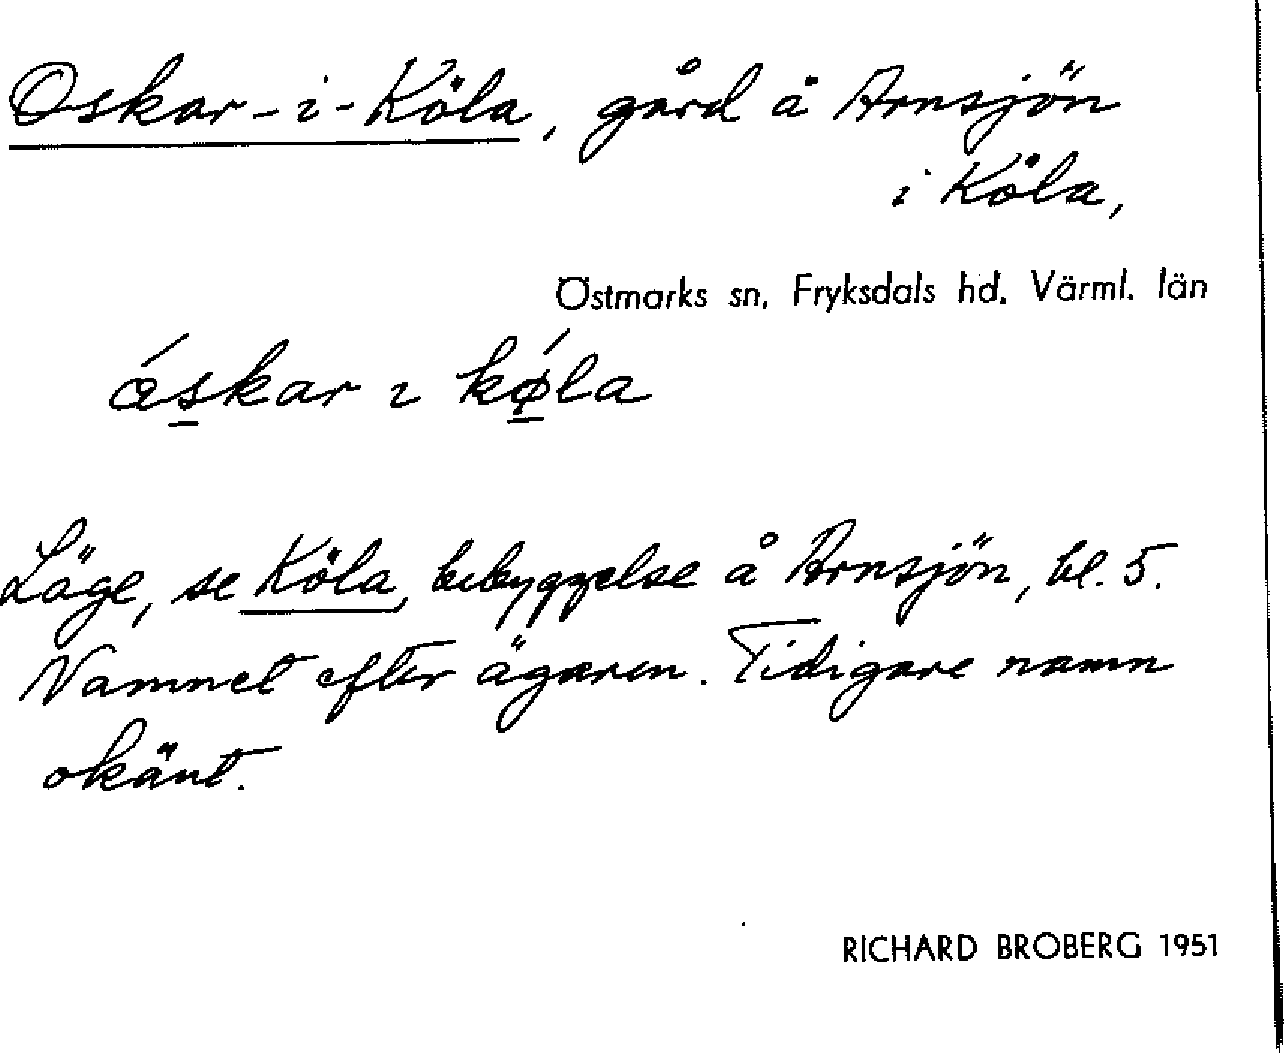 Oskar-i-Köla, gård å Arnsjön
i Köla,
Östmarks sn, Fryksdals hd. Värml. län
ǽskar ı kǿla
Läge, se Köla, bebyggelse å Arnsjön, bl. 5.
Namnet efter ägaren. Tidigare namn
okänt.
RICHARD BROBERG 1951